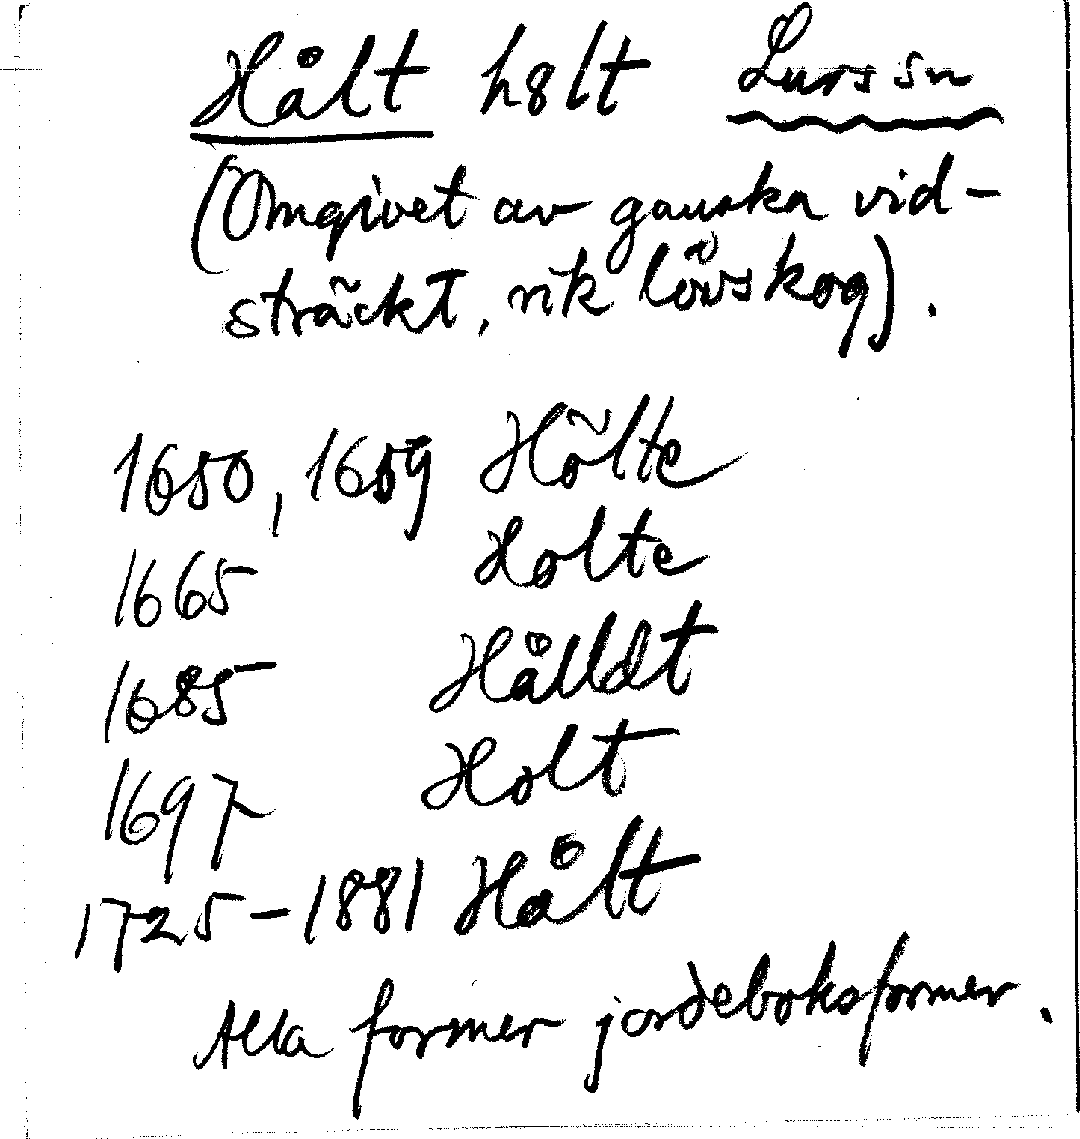 Hålt hɞlt Lurs sn
(Omgivet av ganska vid-
sträckt, rik lövskog).
1650, 1659 Hölte
1665 Holte
1685 Hålldt
1697 Holt
1725-1881 Hålt
Alla former jordeboksformer.